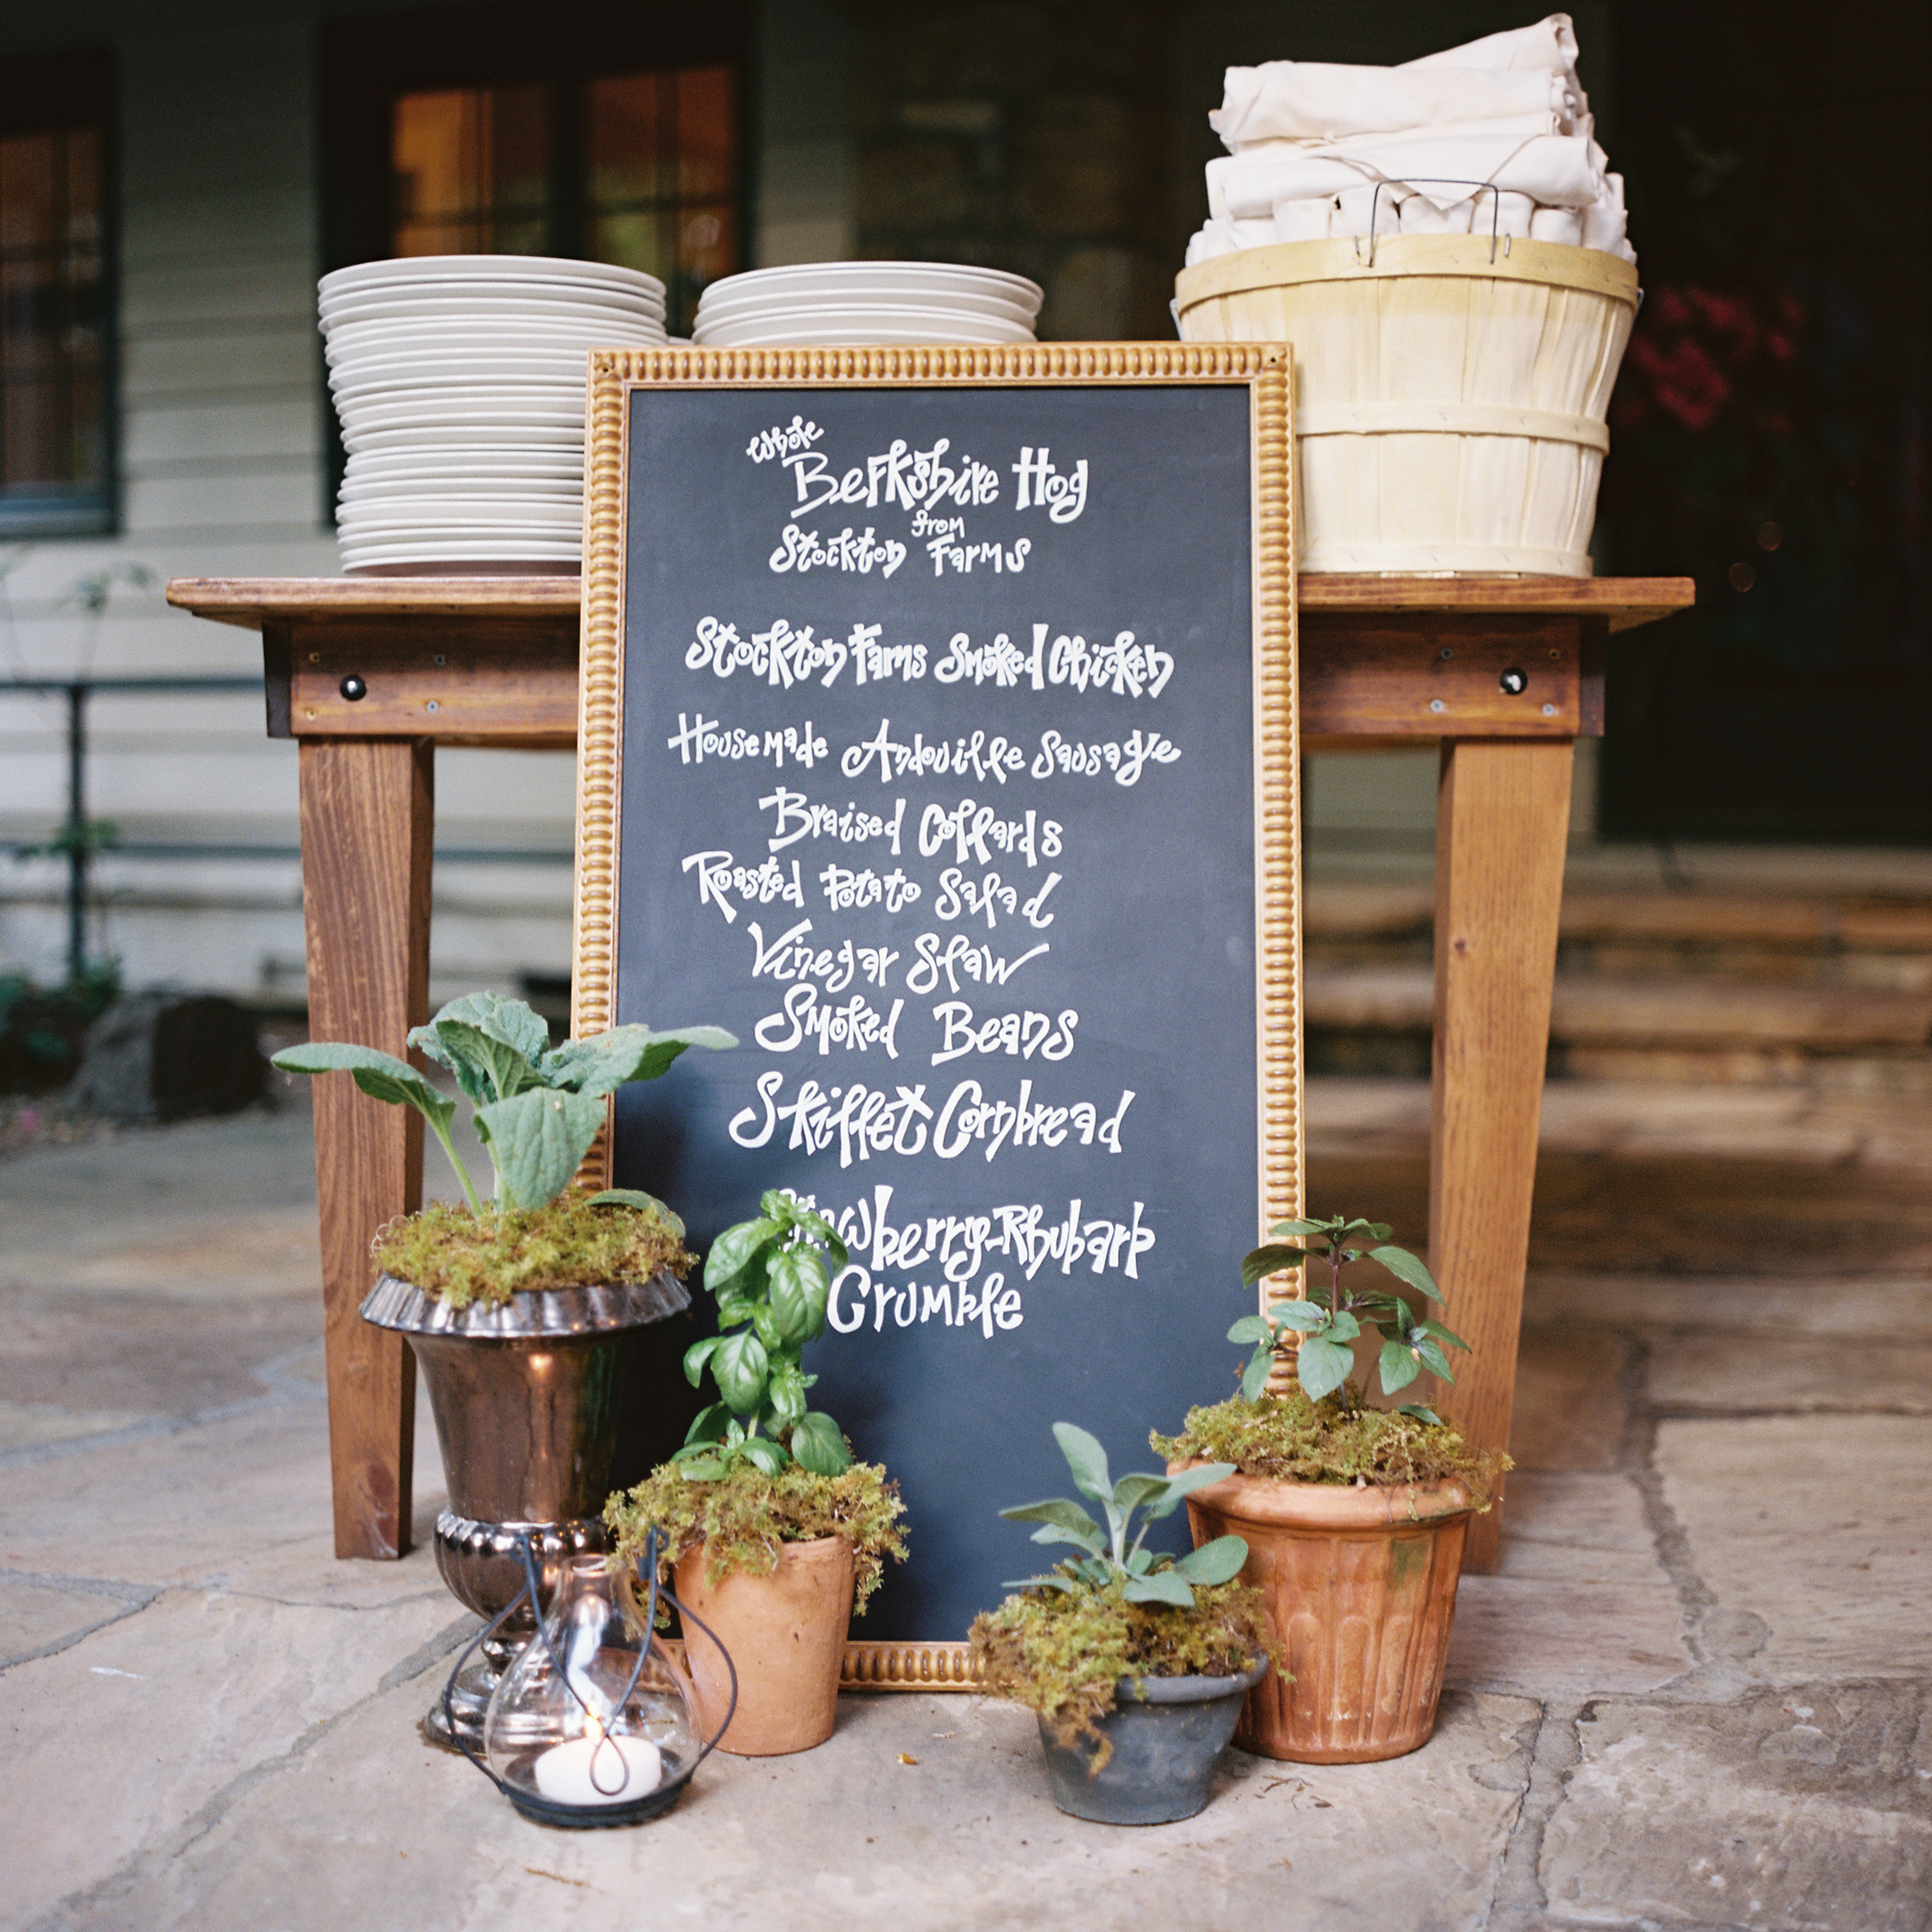 Whole
Berkshire Hog
from
Stockton Farms
Stockton Farms Smoked Chicken
Housemade Andouille Sausage
Braised Collards
Roasted Potato Salad
Vinegar Slaw
Smoked Beans
Skillet Cornbread
Strawberry-Rhubarb
Crumble